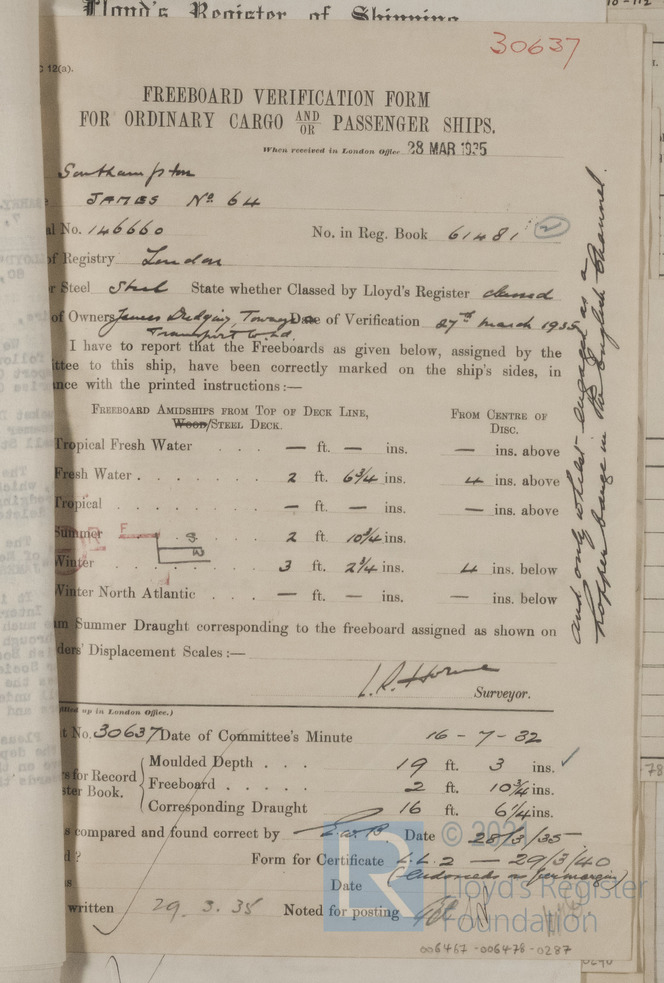 Lloyd's Register of Shipping
30637
C 12(a).
FREEBOARD VERIFICATION FORM
FOR ORDINARY CARGO AND/OR PASSENGER SHIPS.
When received in London Office 28 MAR 1935
Southampton
JAMES No. 64
No. 146660 No. in Reg. Book 61481
of Registry London
Steel Steel State whether Classed by Lloyd's Register classed
of Owners James Dredging, Towage & Date of Verification 27th March 1935
Transport Co. Ld.
I have to report that the Freeboards as given below, assigned by the
ttee to this ship, have been correctly marked on the ship's sides, in
nce with the printed instructions:—
FREEBOARD AMIDSHIPS FROM TOP OF DECK LINE, FROM CENTRE OF
Wood/STEEL DECK. DISC.
Tropical Fresh Water . . . — ft. — ins. — ins. above
Fresh Water . . . . . 2 ft. 6¾ ins. 4 ins. above
Tropical . . . . . — ft. — ins. — ins. above
Summer F S . . . 2 ft. 10¾ ins.
W
Winter . . . . . 3 ft. 2¾ ins. 4 ins. below
Winter North Atlantic . . . — ft. — ins. — ins. below
um Summer Draught corresponding to the freeboard assigned as shown on
ders' Displacement Scales:—
L.R. Horne
Surveyor.
filled up in London Office.)
t No. 30637 Date of Committee's Minute 16 - 7 - 32
Moulded Depth . . . 19 ft. 3 ins.
s for Record Freeboard . . . . . 2 ft. 10¾ ins.
ster Book. Corresponding Draught 16 ft. 6¼ ins.
s compared and found correct by E.W.B. Date 28/3/35
d ? Form for Certificate L.L.2 — 29/3/40
s Date (Endorsed as per margin)
written 29.3.35 Noted for posting
and only whilst engaged as a
hopper barge in the English Channel.
© 2021
Lloyd's Register
Foundation
006467-006478-0287